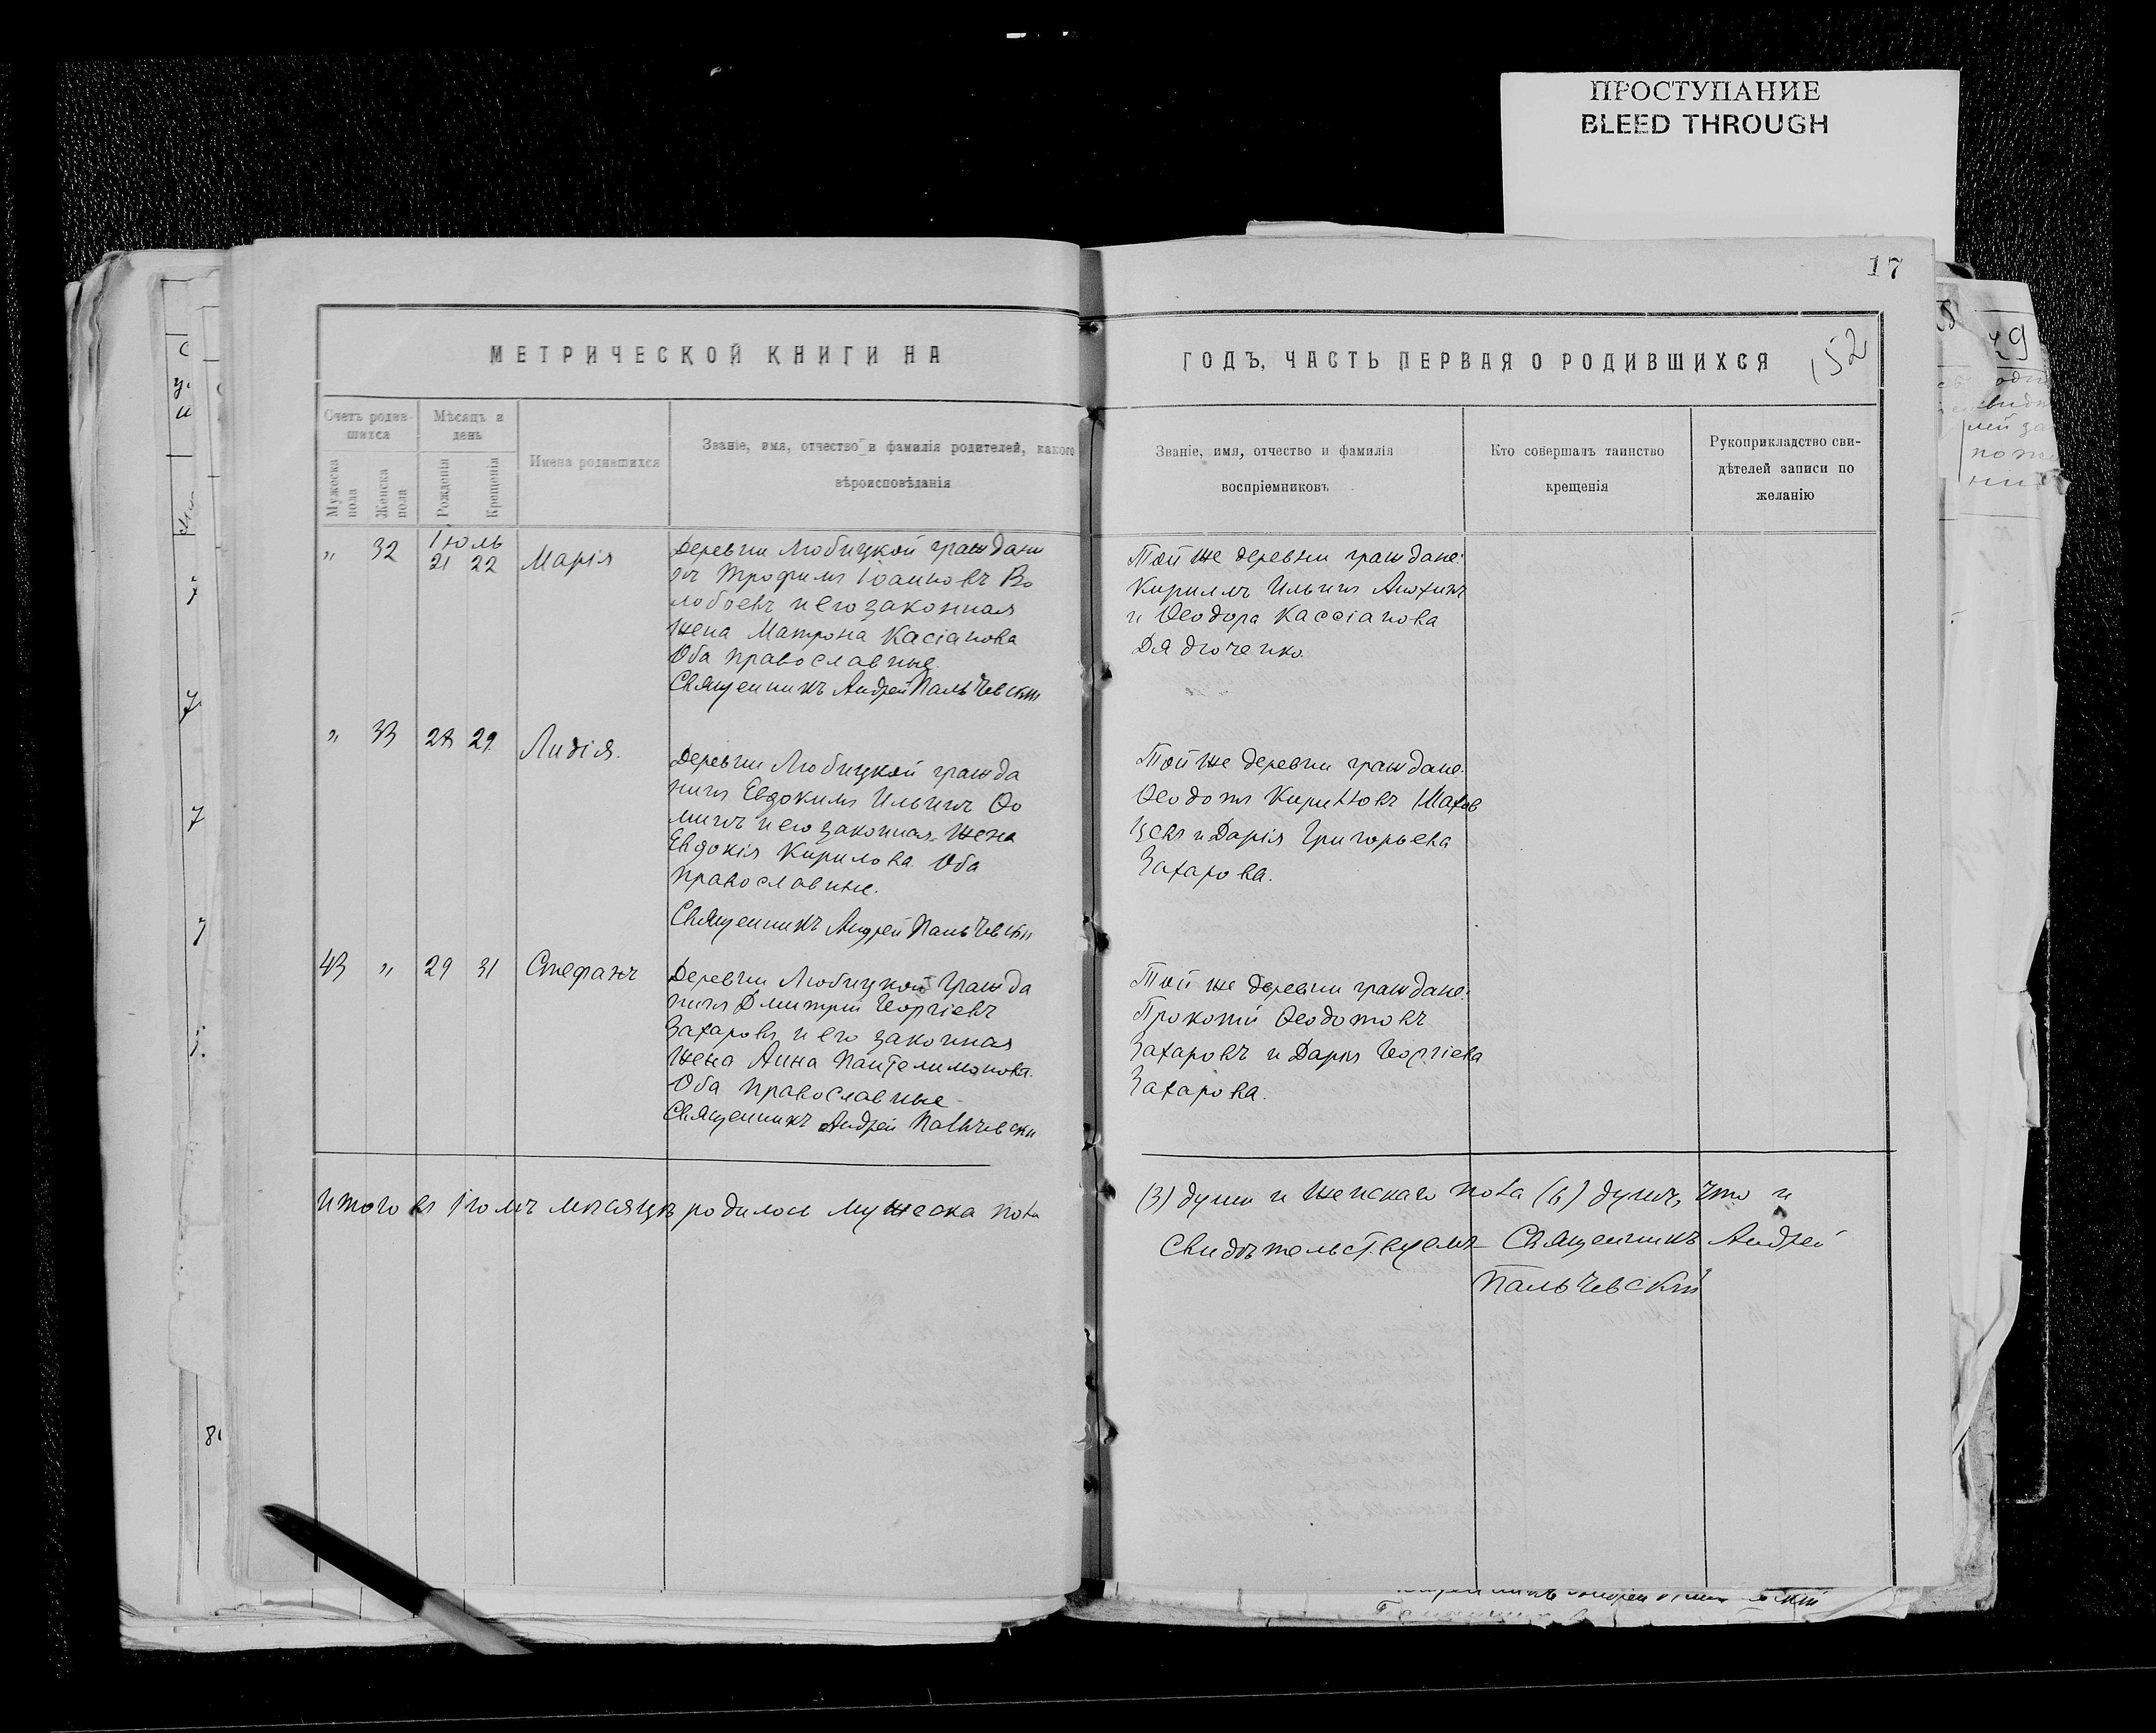 ПРОСТУПАНИЕ
BLEED THROUGH
17
152
МЕТРИЧЕСКОЙ КНИГИ НА
ГОДЪ, ЧАСТЬ ПЕРВАЯ О РОДИВШИХСЯ
Счетъ родив-
шихся
Мужеска пола
Женска пола
Мѣсяцъ и
день
Рожденія
Крещенія
Имена родившихся
Званіе, имя, отчество и фамилія родителей, какого
вѣроисповѣданія
Званіе, имя, отчество и фамилія
воспріемниковъ
Кто совершалъ таинство
крещенія
Рукоприкладство сви-
дѣтелей записи по
желанію
Іюль
" 32 21 22 Марія
Деревни Любицкой граждани
нъ Трофимъ Іоанновъ Во
лобоевъ и его законная
жена Матрона Касіанова
Оба православные.
Священникъ Андрей Пальчевскій
Той же деревни граждане:
Кириллъ Ильинъ Анохинъ
и Ѳеодора Кассіанова
Дядюченко.
" 33 28 29 Лидія.
Деревни Любицкой гражда
нинъ Евдокимъ Ильинъ Ѳо
минъ и его законная жена
Евдокія Кирилова. Оба
православные.
Священникъ Андрей Пальчевскій
Той же деревни граждане:
Ѳеодотъ Кирилловъ
и Дарія Григорьева
Захарова.
43 " 29 31 Стефанъ
Деревни Любицкой гражда
нинъ Дмитрій Георгіевъ
Захаровъ и его законная
жена Анна Пантелимонова.
Оба православные.
Священникъ Андрей Пальчевскій
Той же деревни граждане:
Прокопій Ѳеодотовъ
Захаровъ и Дарія Георгіева
Захарова.
Итого въ Іюлѣ мѣсяцѣ родилось мужеска пола (3) души и женскаго пола (6) душъ, что и
свидѣтельствуемъ Священникъ Андрей
Пальчевскій